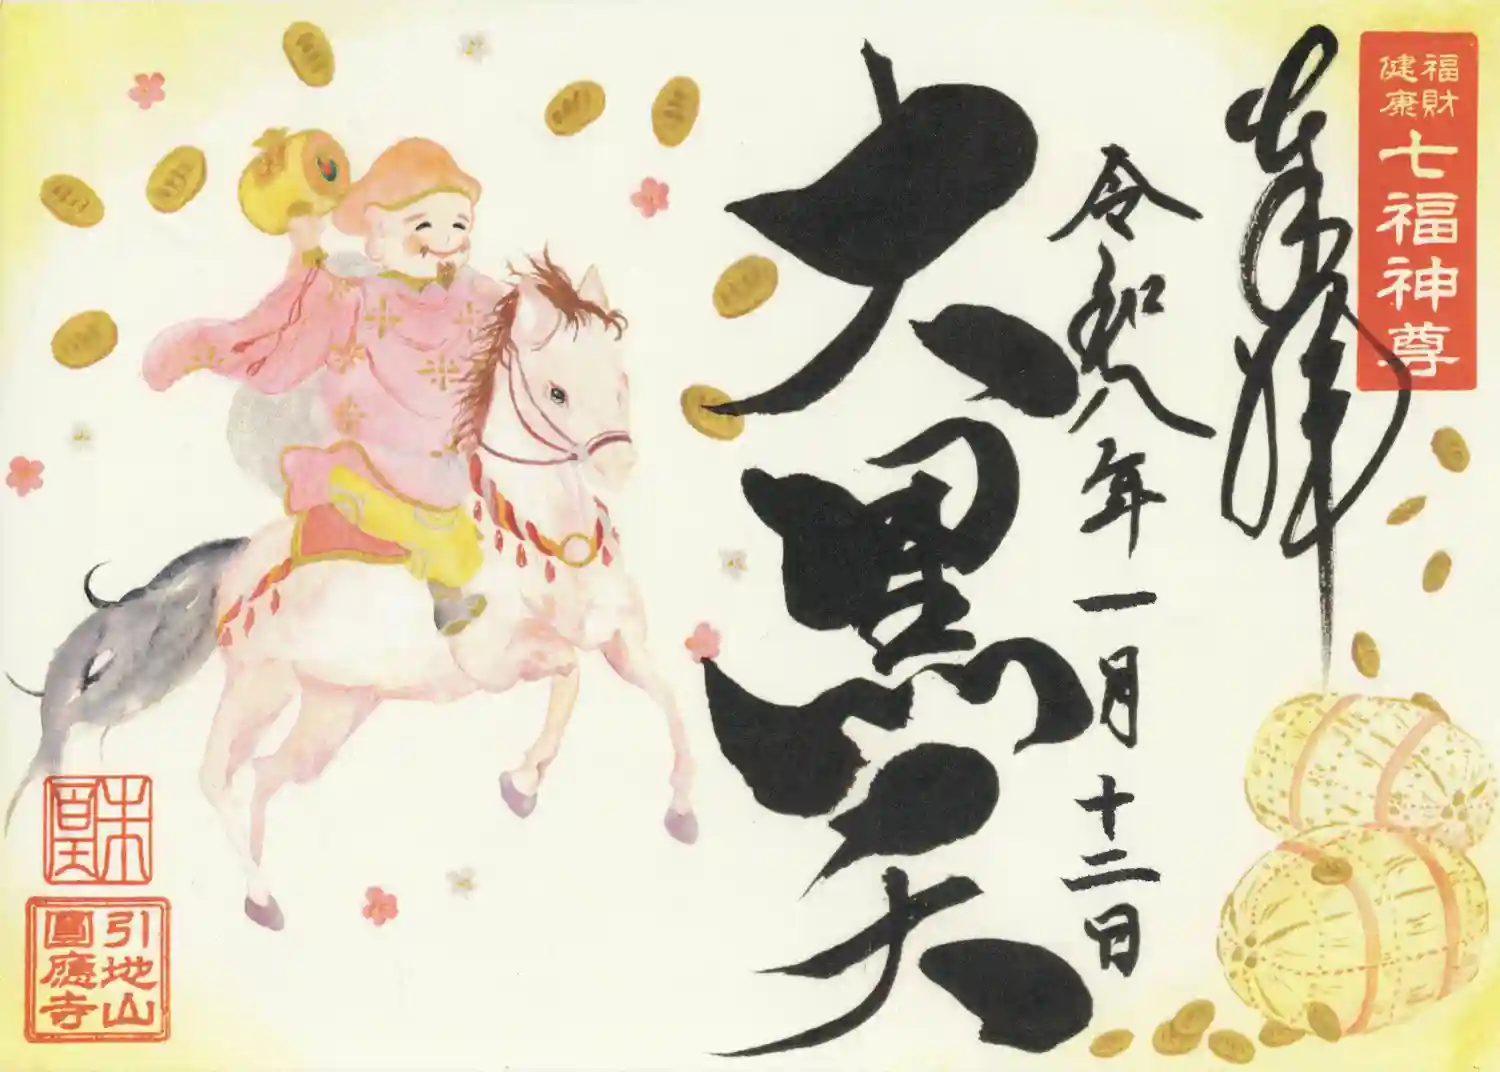 福財
健康
七福神尊
奉拝
令和八年一月十二日
大黒天
引地山
圓應寺